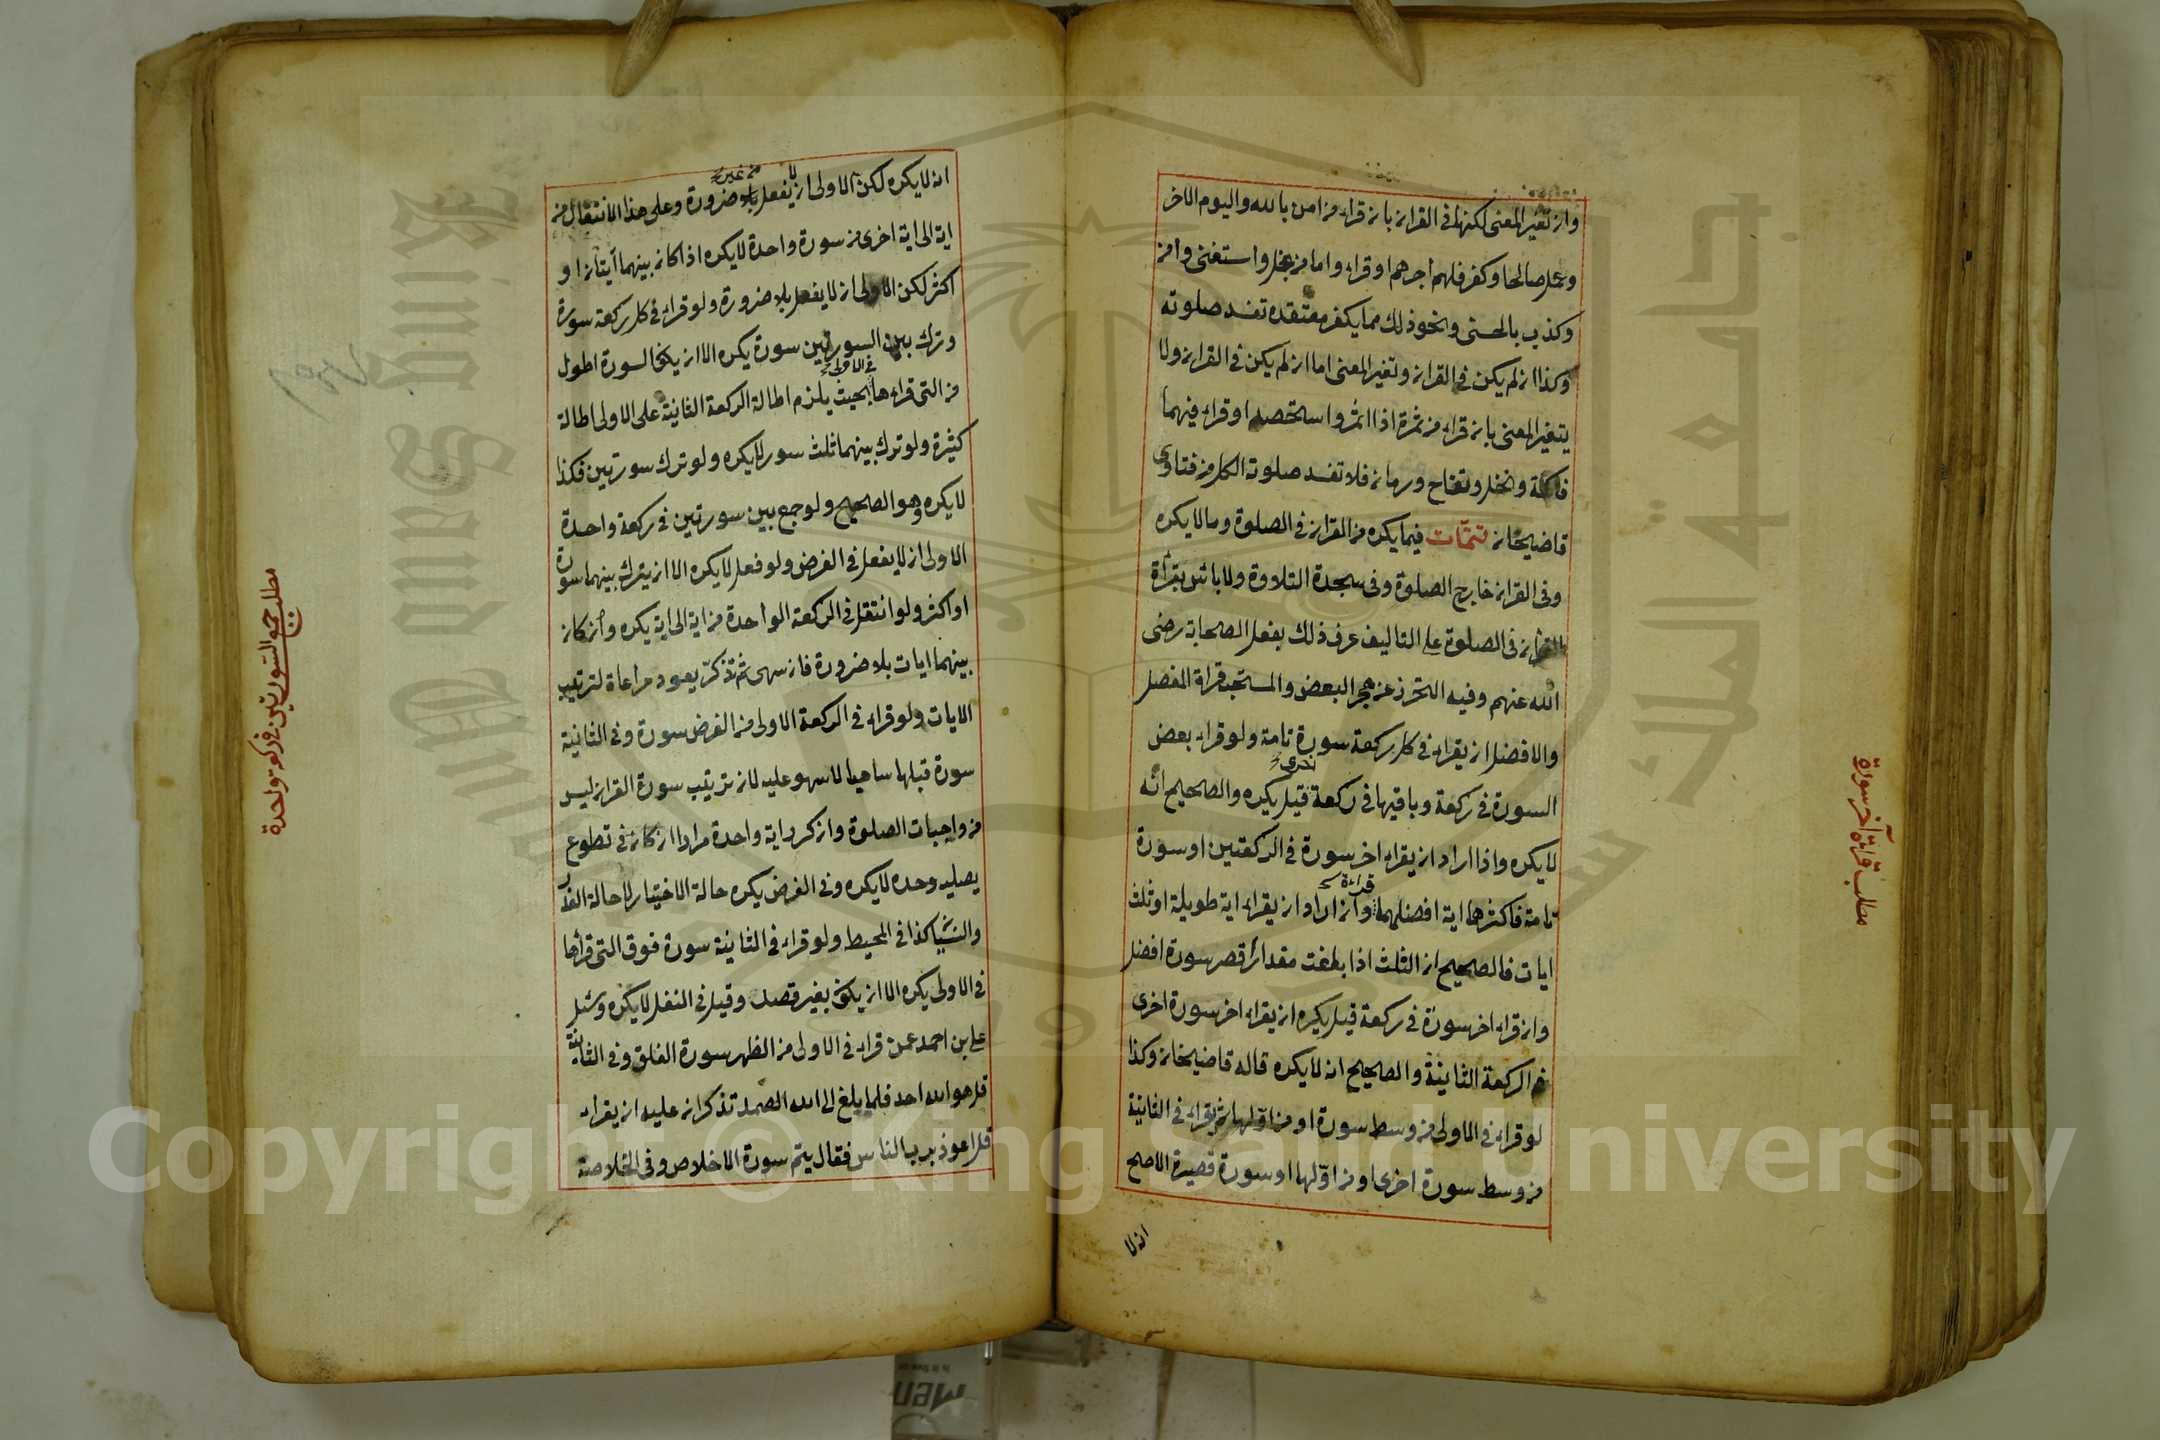 وان تغير المعنى لكنها فى القران بان قراء من امن بالله واليوم الاخر
وعمل صالحا وكفر فلهم اجرهم او قراء واما من بخل واستغنى وامن
وكذب بالحسنى ونحو ذلك مما يكفر معتقده تفسد صلوته
وكذا ان لم يكن فى القران وتغير المعنى اما ان لم يكن فى القران ولا
يتغير المعنى بان قراء من ثمره اذا اثمر واستحصد او قراء فيهما
فاكهة ونخل وتفاح ورمان فلا تفسد صلوته الكل من فتاوى
قاضيخان تتمات فيما يكره من القران فى الصلوة وما لا يكره
وفى القران خارج الصلوة وفى سجدة التلاوة ولا باس بقرأة
القران فى الصلوة على التاليف عرف ذلك بفعل الصحابة رضى
الله عنهم وفيه التحرز عن هجر البعض والمستحب قراة المفصل
والافضل ان يقراء فى كل ركعة سورة تامة ولو قراء بعض
السورة فى ركعة وباقيها فى ركعة اخرى قيل يكره والصحيح انه
لا يكره واذا اراد ان يقراء اخر سورة فى الركعتين او سورة
تامة فاكثرهما اية افضلهما قراءة وان اراد ان يقراء اية طويلة او ثلث
ايات فالصحيح ان الثلث اذا بلغت مقدار اقصر سورة افضل
وان قراء اخر سورة فى ركعة قيل يكره ان يقراء اخر سورة اخرى
فى الركعة الثانية والصحيح انه لا يكره قاله قاضيخان وكذا
لو قراء فى الاولى من وسط سورة او من اولها ثم يقراء فى الثانية
من وسط سورة اخرى او من اولها او سورة قصيرة الاصح
انه لا
مطلب قراءة آخر سورة
انه لا يكره لكن الاولى ان لا يفعل من غير ضرورة وعلى هذا الانتقال من
اية الى اية اخرى من سورة واحدة لا يكره اذا كان بينهما آيتان او
اكثر لكن الاولى ان لا يفعل بلا ضرورة ولو قراء فى كل ركعة سورة
وترك بين السورتين سورة يكره الا ان يكون السورة اطول
من التى قراءها فى الاولى بحيث يلزم اطالة الركعة الثانية على الاولى اطالة
كثيرة ولو ترك بينهما ثلث سور لا يكره ولو ترك سورتين فكذا
لا يكره وهو الصحيح ولو جمع بين سورتين فى ركعة واحدة
الاولى ان لا يفعل فى الفرض ولو فعل لا يكره الا ان يترك بينهما سورة
او اكثر ولو انتقل فى الركعة الواحدة من اية الى اية يكره وان كان
بينهما ايات بلا ضرورة فان سهى ثم تذكر يعود مراعاة لترتيب
الايات ولو قراء فى الركعة الاولى من الفرض سورة وفى الثانية
سورة قبلها ساهيا لا سهو عليه لان ترتيب سورة القران ليس
من واجبات الصلوة وان كرر اية واحدة مرارا ان كان فى تطوع
يصليه وحده لا يكره وفى الفرض يكره حالة الاختيار لا حالة العذر
والنسيا كذا فى المحيط ولو قراء فى الثانية سورة فوق التى قرأها
فى الاولى يكره الا ان يكون بغير قصد وقيل فى النفل لا يكره وسئل
على بن احمد عمن قراء فى الاولى من الظهر سورة الفلق وفى الثانية
قل هو الله احد فلما بلغ الى الله الصمد تذكر ان عليه ان يقراء
قل اعوذ برب الناس فقال يتم سورة الاخلاص وفى الخلاصة
مطلب جمع السورتين فى ركعة واحدة
Copyright © King Saud University